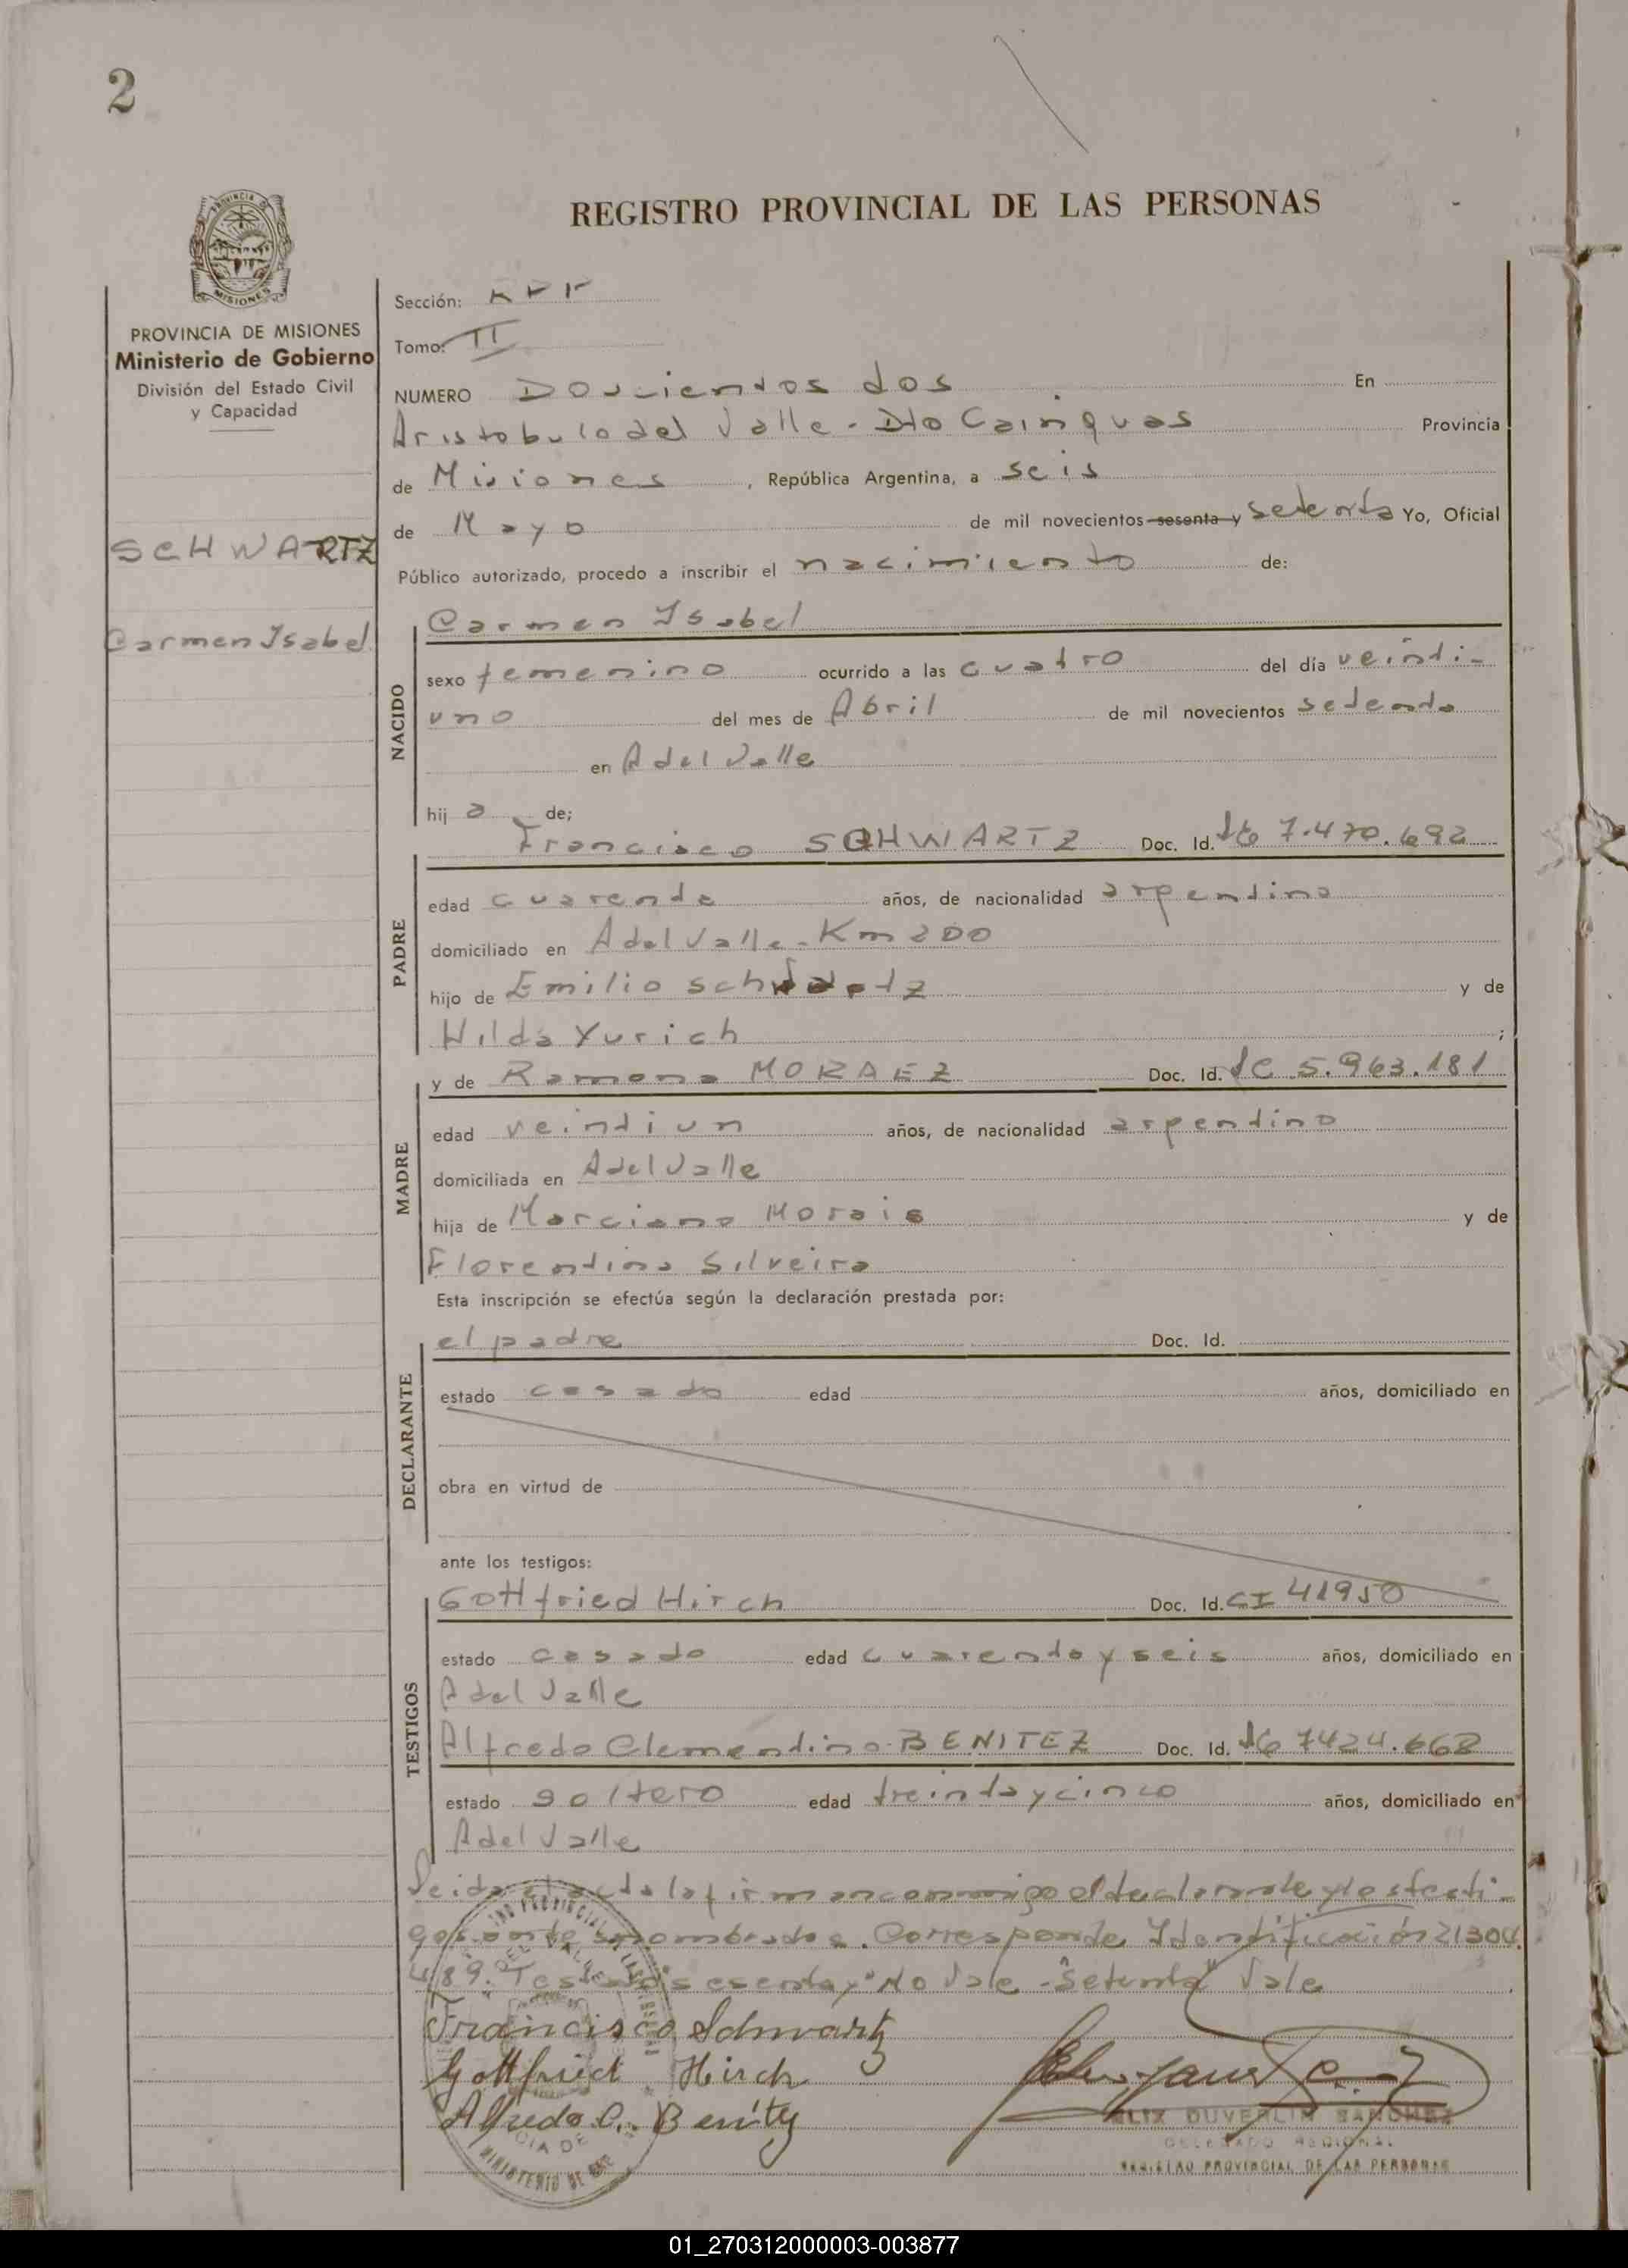 2
REGISTRO PROVINCIAL DE LAS PERSONAS
PROVINCIA DE MISIONES
Ministerio de Gobierno
División del Estado Civil
y Capacidad
SCHWARTZ
Carmen Isabel
Sección:
Tomo: II
NUMERO Doscientos dos En
Aristobulo del Valle - Dto Cainguas Provincia
de Misiones, República Argentina, a seis
de Mayo de mil novecientos sesenta y setenta Yo, Oficial
Público autorizado, procedo a inscribir el nacimiento de:
NACIDO
Carmen Isabel
sexo femenino ocurrido a las cuatro del día veinti-
uno del mes de Abril de mil novecientos setenta
en A del Valle
hij a de;
PADRE
Francisco SCHWARTZ Doc. Id. 7.470.692
edad cuarenta años, de nacionalidad argentina
domiciliado en A del Valle - Km 200
hijo de Emilio Schwartz y de
Hilda Yurich ;
MADRE
y de Ramona MORAEZ Doc. Id. LC 5.963.181
edad veintiun años, de nacionalidad argentina
domiciliada en A del Valle
hija de Marciano Morais y de
Florentina Silveira
Esta inscripción se efectúa según la declaración prestada por:
DECLARANTE
el padre Doc. Id.
estado casado edad años, domiciliado en
obra en virtud de
ante los testigos:
TESTIGOS
Gottfried Hirch Doc. Id. CI 41950
estado casado edad cuarenta y seis años, domiciliado en
A del Valle
Alfredo Clementino BENITEZ Doc. Id. 7424.668
estado soltero edad treinta y cinco años, domiciliado en
A del Valle
Leida el acta la firman conmigo el declarante y los testi-
gos antes nombrados. Corresponde Identificación 21304
489. Testado "sesenta y" No Vale - "Setenta" Vale
Francisco Schwartz
Gottfried Hirch
Alfredo C. Benítez
ELIX DUVERLIN SANCHEZ
DELEGADO REGIONAL
REGISTRO PROVINCIAL DE LAS PERSONAS
01_270312000003-003877